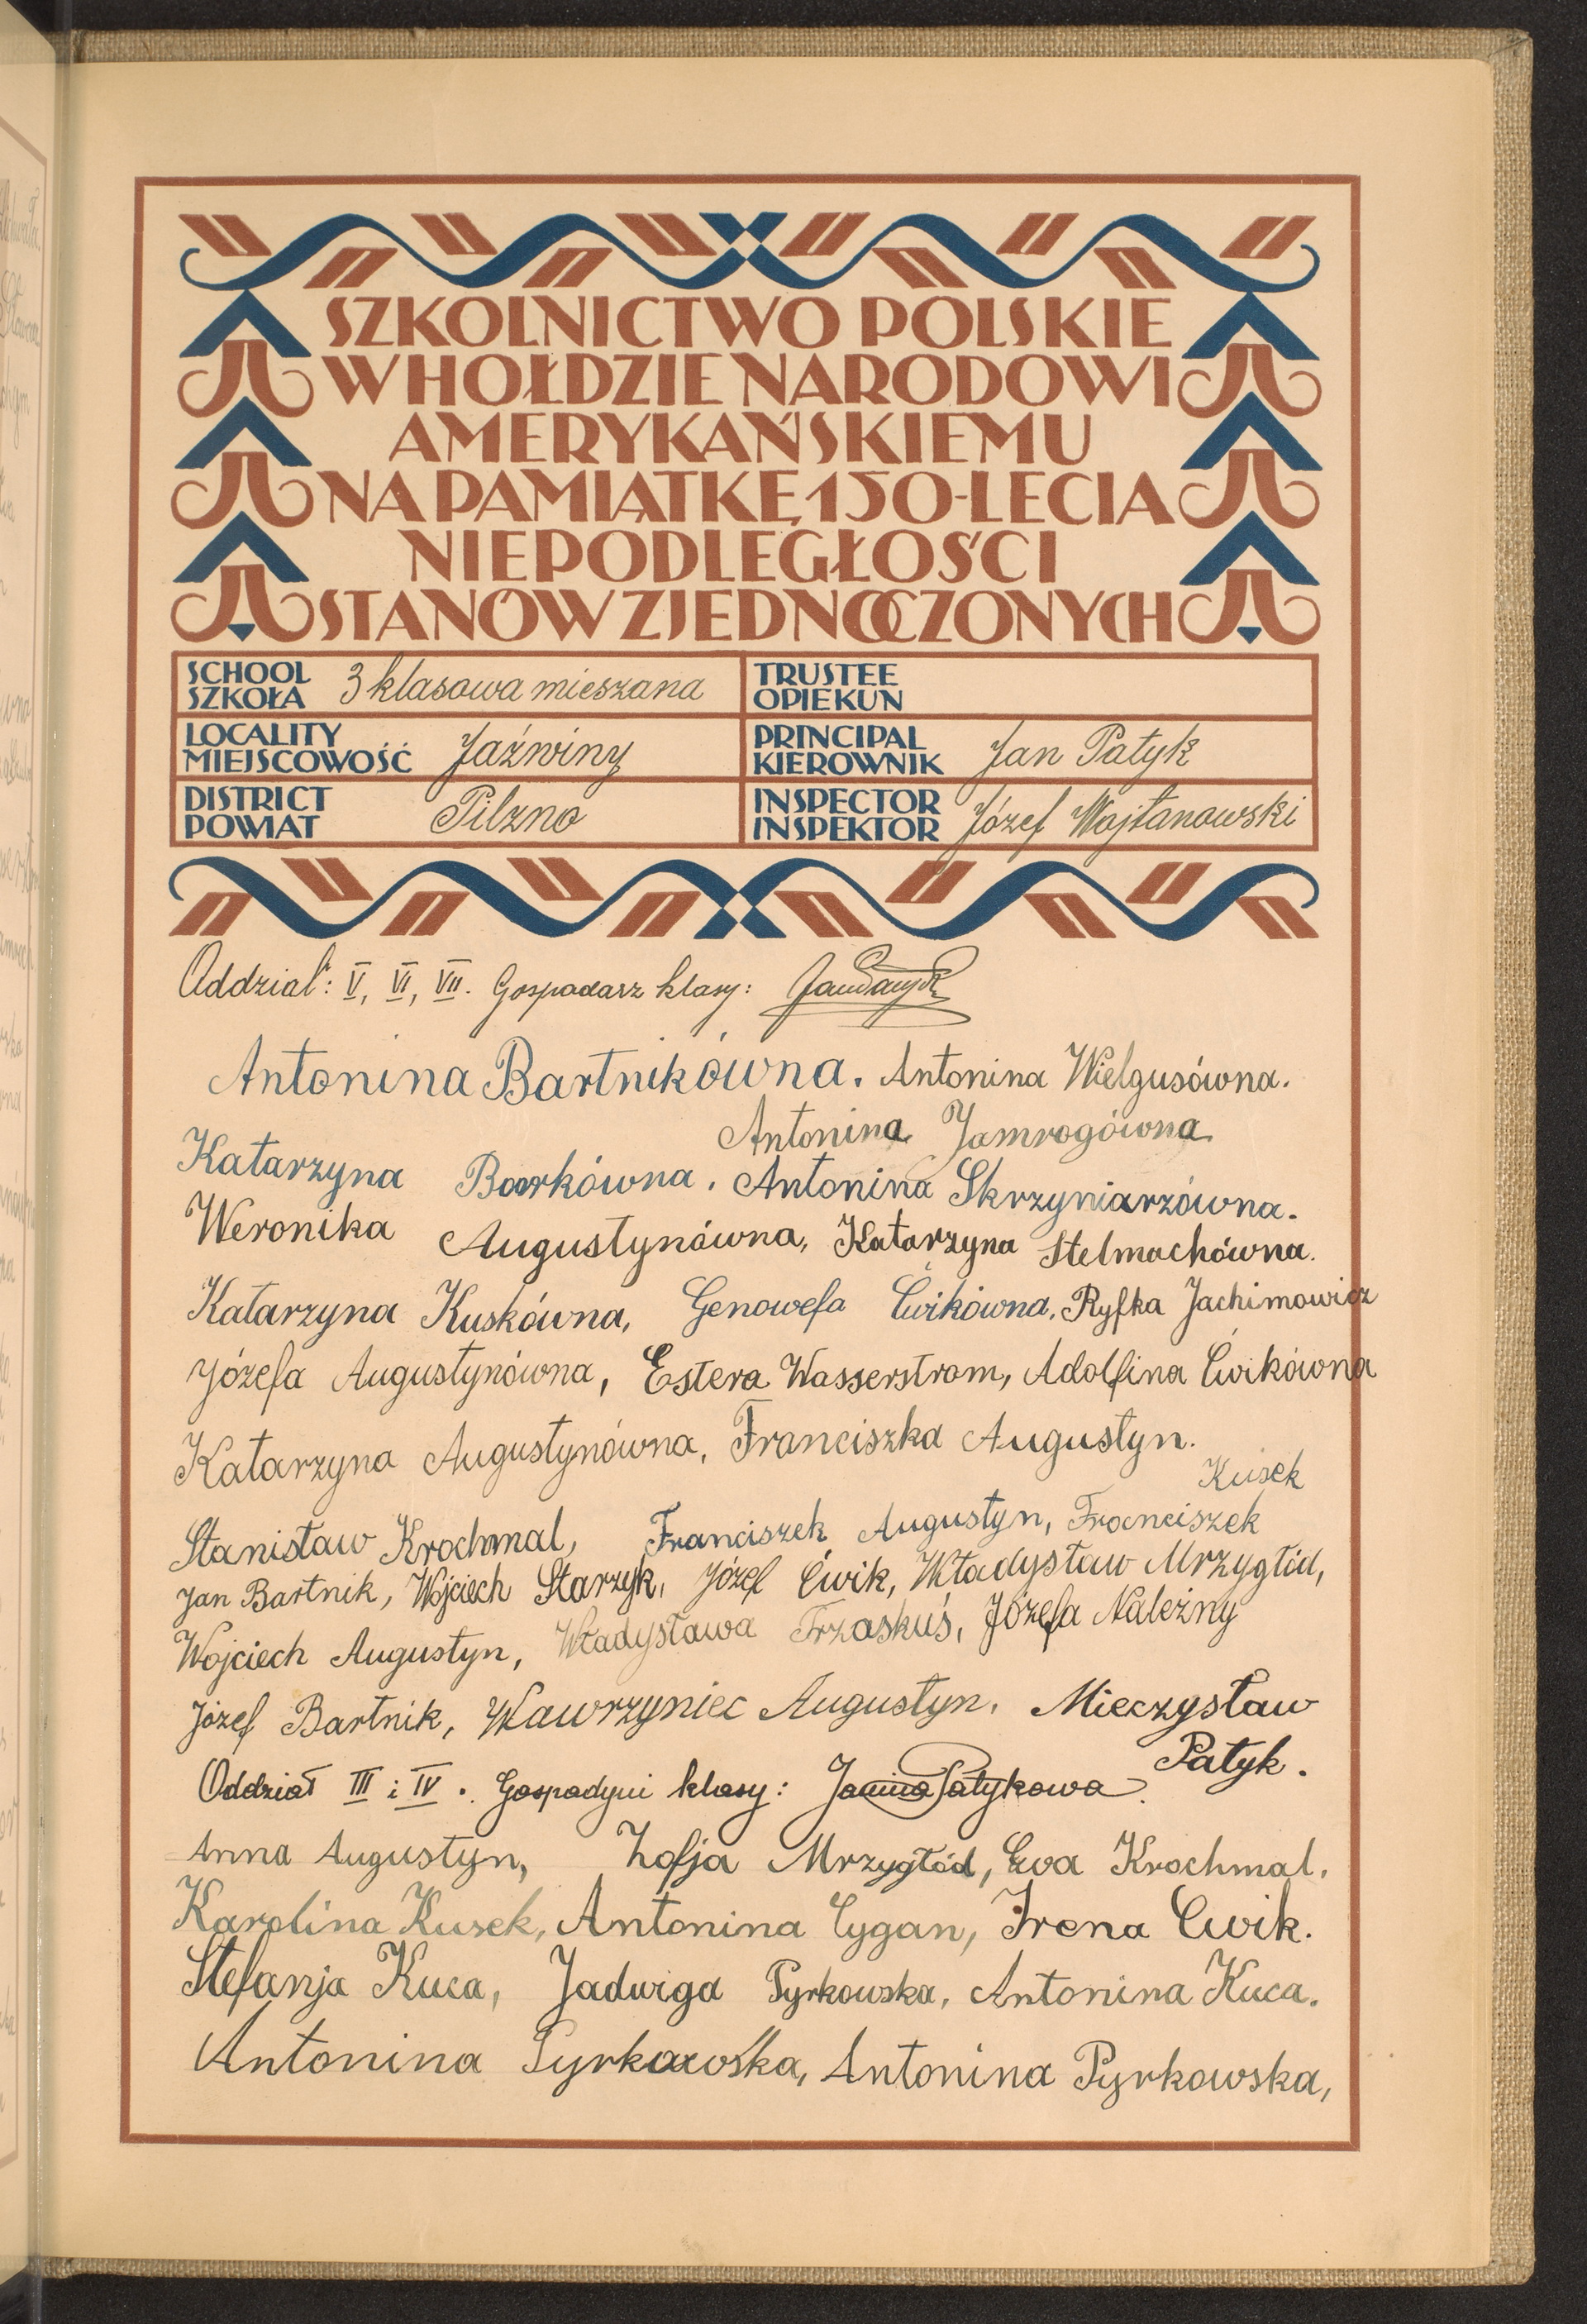 SZKOLNICTWO POLSKIE
W HOŁDZIE NARODOWI
AMERYKAŃSKIEMU
NA PAMIĄTKĘ 150-LECIA
NIEPODLEGŁOŚCI
STANÓW ZJEDNOCZONYCH
SCHOOL
SZKOŁA 3 klasowa mieszana
TRUSTEE
OPIEKUN
LOCALITY
MIEJSCOWOŚĆ Jaźwiny
PRINCIPAL
KIEROWNIK Jan Patyk
DISTRICT
POWIAT Pilzno
INSPECTOR
INSPEKTOR Józef Wojtanowski
Oddział: V, VI, VII. Gospodarz klasy: Jan Patyk
Antonina Bartnikówna. Antonina Wielgusówna.
Antonina Jamrogówna
Katarzyna Borkówna. Antonina Skrzyniarzówna.
Weronika Augustynówna, Katarzyna Stelmachówna.
Katarzyna Kuskówna, Genowefa Ćwikówna, Ryfka Jachimowicz
Józefa Augustynówna, Estera Wasserstrom, Adolfina Ćwikówna
Katarzyna Augustynówna, Franciszka Augustyn.
Kusek
Stanisław Krochmal, Franciszek Augustyn, Franciszek
Jan Bartnik, Wojciech Starzyk, Józef Ćwik, Władysław Mrzygłód,
Wojciech Augustyn, Władysława Trzaskuś, Józefa Należny
Józef Bartnik, Wawrzyniec Augustyn. Mieczysław
Patyk.
Oddział III i IV. Gospodyni klasy: Janina Patykowa
Anna Augustyn, Zofja Mrzygłód, Ewa Krochmal.
Karolina Kusek, Antonina Cygan, Irena Cwik.
Stefanja Kuca, Jadwiga Pyrkowska, Antonina Kuca.
Antonina Pyrkowska, Antonina Pyrkowska,